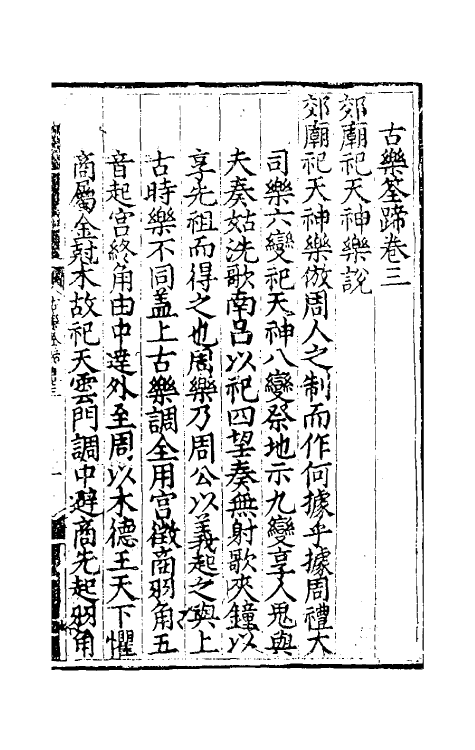 古樂筌蹄卷三
郊廟祀天神樂說
郊廟祀天神樂倣周人之制而作何據乎據周禮大
司樂六變祀天神八變祭地示九變享人鬼與
夫奏姑洗歌南呂以祀四望奏無射歌夾鐘以
享先祖而得之也周樂乃周公以義起之與上
古時樂不同盖上古樂調全用宮徵商羽角五
音起宮終角由中達外至周以木德王天下懼
商屬金尅木故祀天雲門調中避商先起羽角